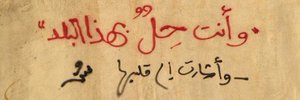 "وأنت حِلٌّ بهذا البلد"
_ وأشارت إلى قلبها